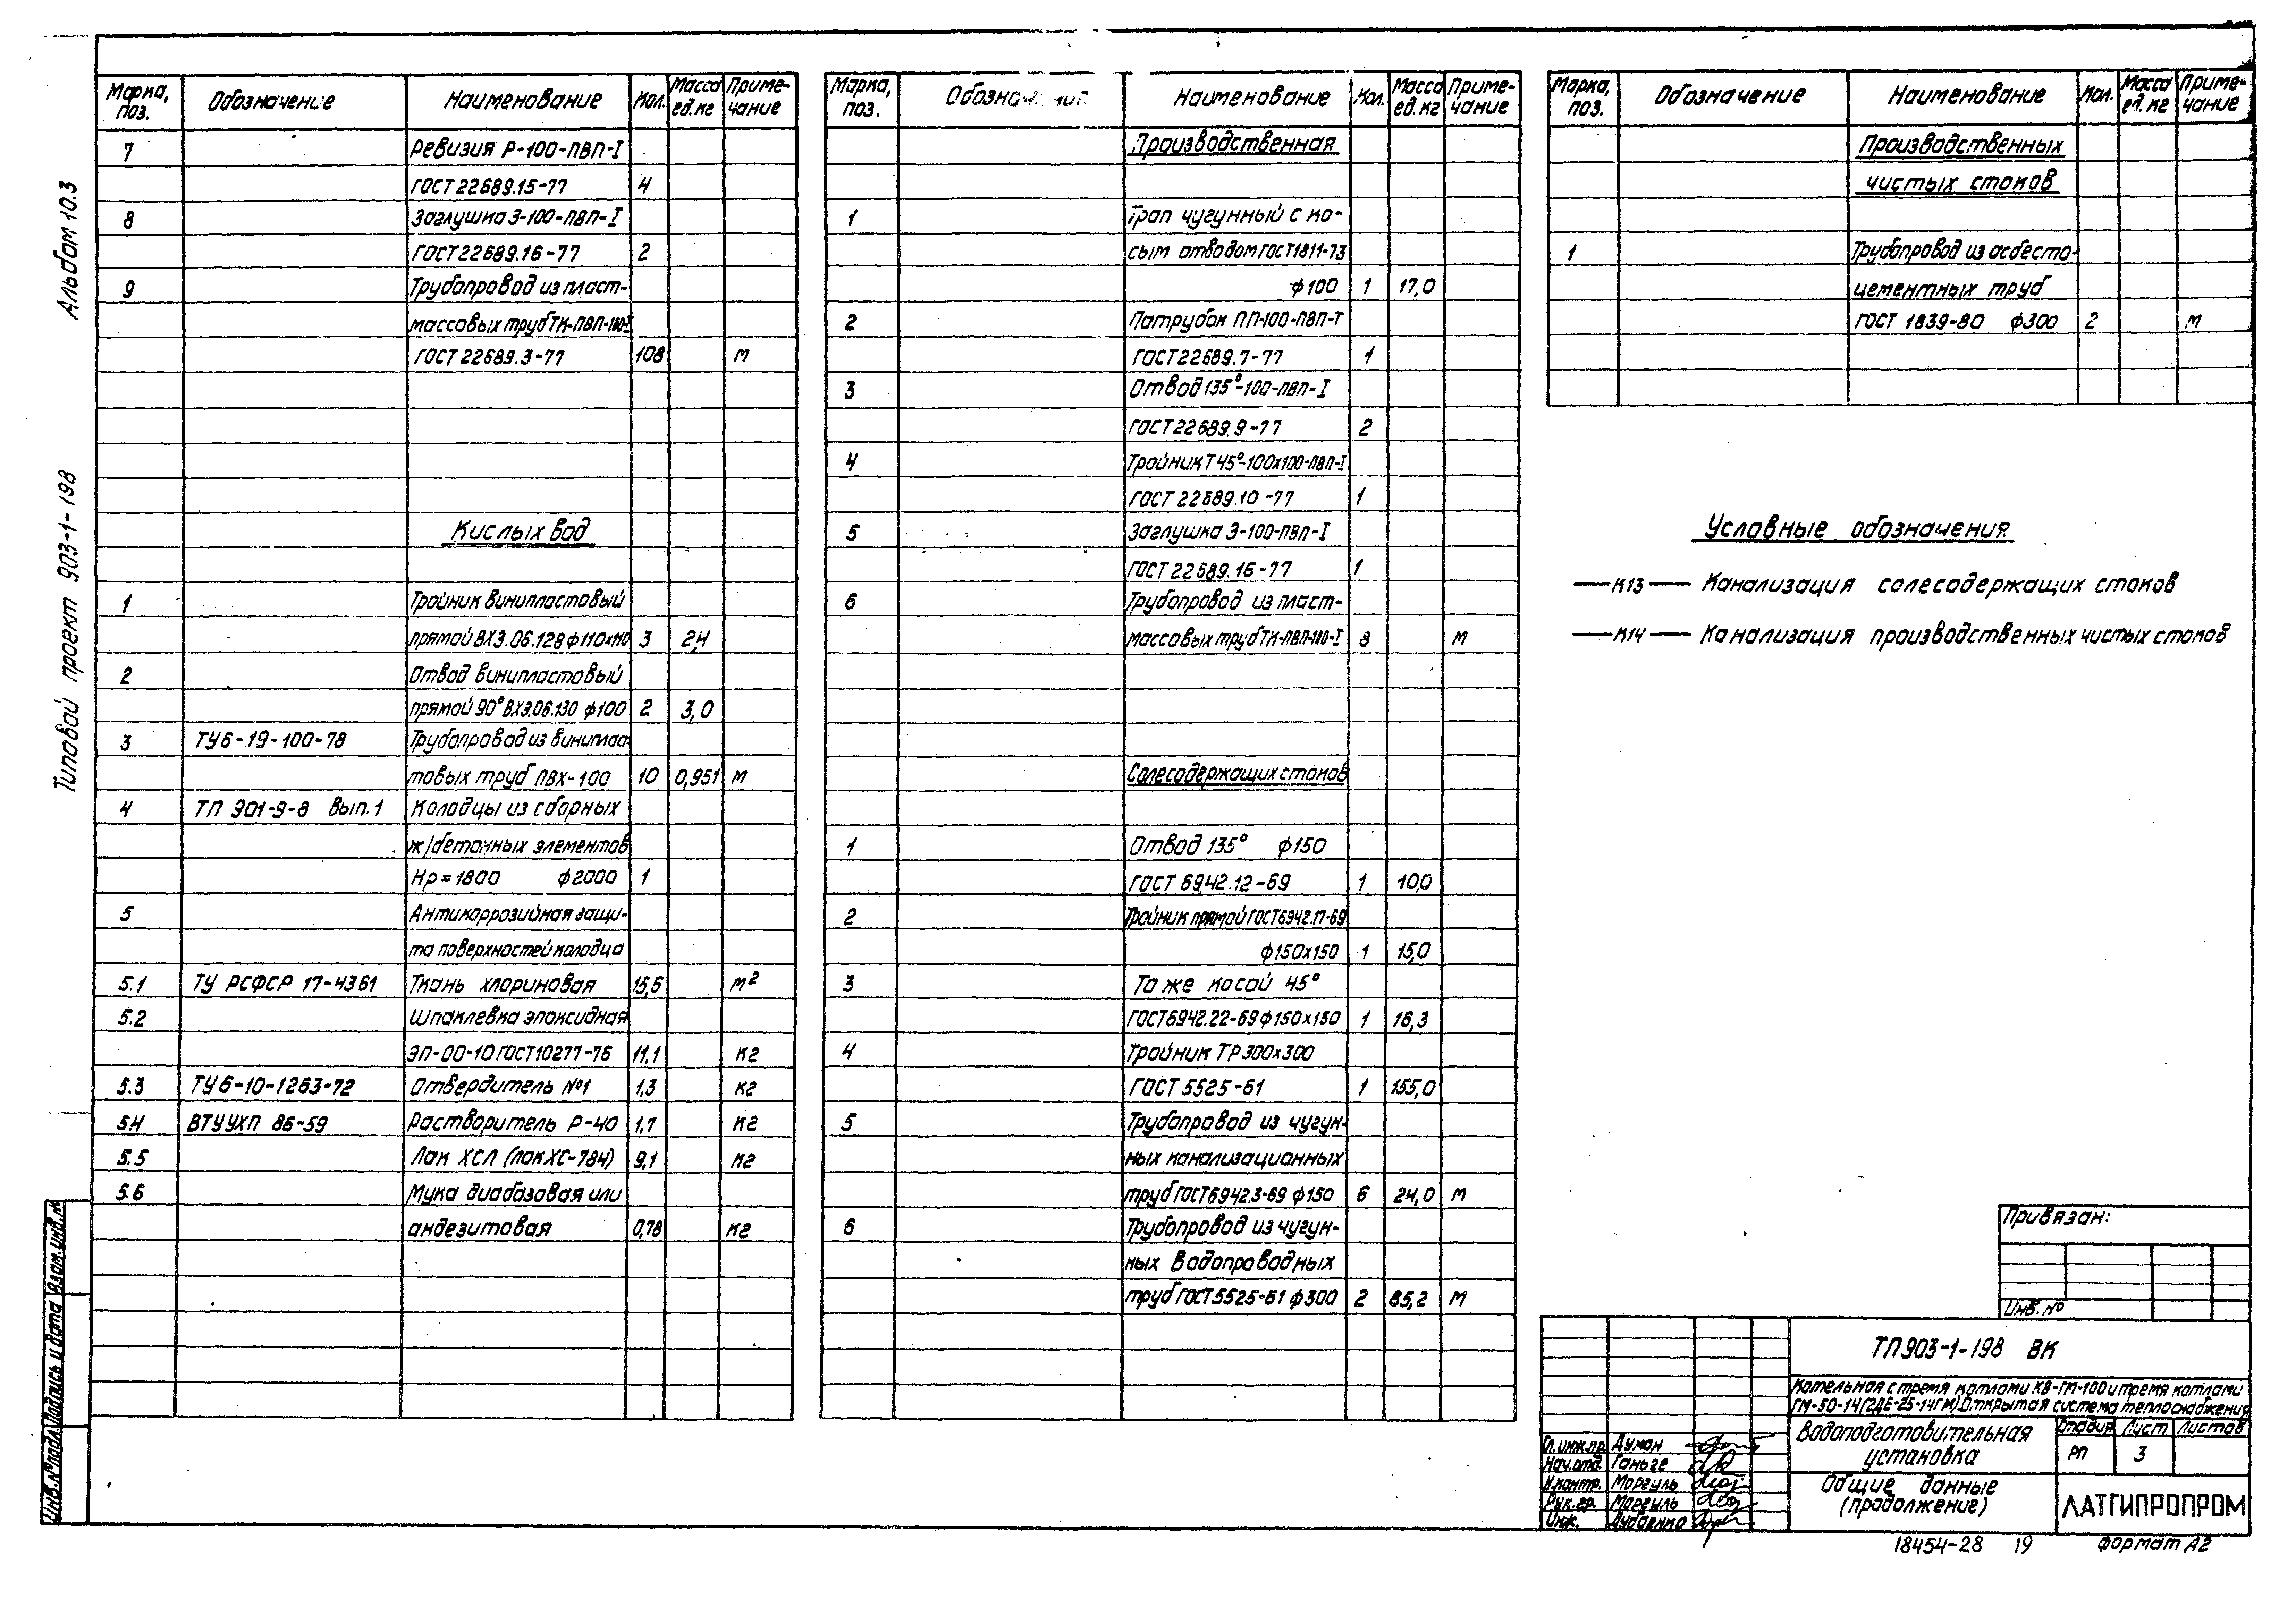 Альбом 10.3
Типовой проект 903-1-198
Марка, поз. Обозначение Наименование Кол. Масса ед. кг Приме-чание
7 Ревизия Р-100-ПВП-I
ГОСТ 22689.15-77 4
8 Заглушка З-100-ПВП-I
ГОСТ 22689.16-77 2
9 Трубопровод из пласт-
массовых труб ТК-ПВП-100-I
ГОСТ 22689.3-77 108 м
Кислых вод
1 Тройник винипластовый
прямой ВХ3.06.128 ф110х110 3 2,4
2 Отвод винипластовый
прямой 90° ВХ3.06.130 ф100 2 3,0
3 ТУ6-19-100-78 Трубопровод из винипла-
товых труб ПВХ-100 10 0,951 м
4 ТП 901-9-8 Вып.1 Колодцы из сборных
ж/бетонных элементов
Нр=1800 ф2000 1
5 Антикоррозийная защи-
та поверхностей колодца
5.1 ТУ РСФСР 17-4361 Ткань хлориновая 15,6 м²
5.2 Шпаклевка эпоксидная
ЭП-00-10 ГОСТ 10277-76 11,1 кг
5.3 ТУ6-10-1263-72 Отвердитель №1 1,3 кг
5.4 ВТУ УХП 86-59 Растворитель Р-40 1,7 кг
5.5 Лак ХСЛ (лак ХС-784) 9,1 кг
5.6 Мука диабазовая или
андезитовая 0,78 кг
Марка, поз. Обозначение Наименование Кол. Масса ед. кг Приме-чание
Производственная
1 Трап чугунный с ко-
сым отводом ГОСТ 1811-73
ф100 1 17,0
2 Патрубок ПП-100-ПВП-Т
ГОСТ 22689.7-77 1
3 Отвод 135°-100-ПВП-I
ГОСТ 22689.9-77 2
4 Тройник Т 45°-100х100-ПВП-I
ГОСТ 22689.10-77 1
5 Заглушка З-100-ПВП-I
ГОСТ 22689.16-77 1
6 Трубопровод из пласт-
массовых труб ТК-ПВП-100-I 8 м
Солесодержащих стоков
1 Отвод 135° ф150
ГОСТ 6942.12-69 1 10,0
2 Тройник прямой ГОСТ 6942.17-69
ф150х150 1 15,0
3 То же косой 45°
ГОСТ 6942.22-69 ф150х150 1 16,3
4 Тройник ТР 300х300
ГОСТ 5525-61 1 155,0
5 Трубопровод из чугун-
ных канализационных
труб ГОСТ 6942.3-69 ф150 6 24,0 м
6 Трубопровод из чугун-
ных водопроводных
труб ГОСТ 5525-61 ф300 2 85,2 м
Марка, поз. Обозначение Наименование Кол. Масса ед. кг Приме-чание
Производственных
чистых стоков
1 Трубопровод из асбесто-
цементных труб
ГОСТ 1839-80 ф300 2 м
Условные обозначения
—К13— Канализация солесодержащих стоков
—К14— Канализация производственных чистых стоков
Привязан:
Инв. №
ТП 903-1-198 ВК
Котельная с тремя котлами КВ-ГМ-100 и тремя котлами
ГМ-50-14 (2ДЕ-25-14ГМ). Открытая система теплоснабжения
Водоподготовительная
установка
Стадия Лист Листов
РП 3
Общие данные
(продолжение)
ЛАТГИПРОПРОМ
Гл. инж. пр. Думан
Нач. отд. Ганьге
Н. контр. Моргуль
Рук. гр. Моргуль
Инж. Дубленко
Инв. № подл. Подпись и дата Взам. инв. №
18454-28 19 Формат А2